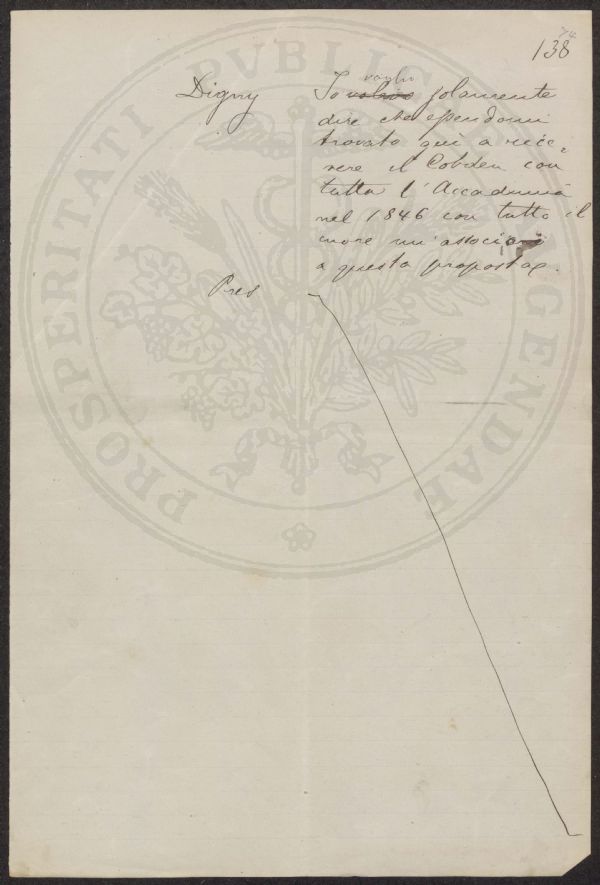 74
138
Digny Io voglio solamente
dire che essendomi
trovato qui a rice=
vere il Cobden con
tutta l'Accademia
nel 1846 con tutto il
cuore mi associo
a questa proposta.
Pres
PROSPERITATI PVBLICAE AVGENDAE